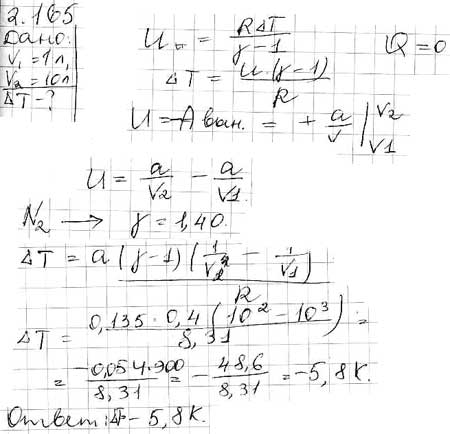 2.165
Дано:
V1 = 1л,
V2 = 10л
ΔT - ?
U = RΔT / γ - 1
Q = 0
ΔT = U (γ - 1) / R
U = - A вн. = + a/V | V2 V1
U = a/V2 - a/V1
N2 → γ = 1,40.
ΔT = a (γ - 1) (1/V2 - 1/V1) / R
ΔT = 0,135 · 0,4 (10² - 10³) / 8,31 =
= -0,054·900 / 8,31 = - 48,6 / 8,31 = -5,8 K.
Ответ: - 5,8 K.